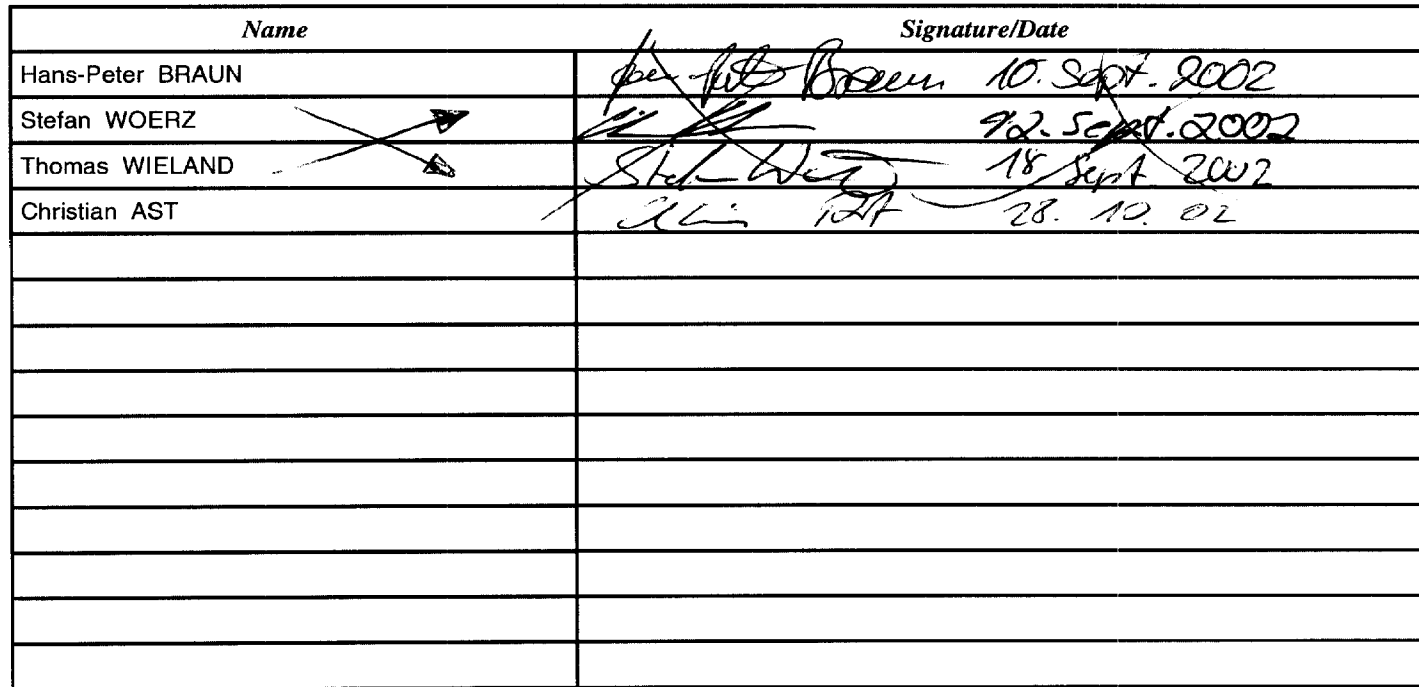 Name Signature/Date
Hans-Peter BRAUN Braun 10. Sept. 2002
Stefan WOERZ 12. Sept. 2002
Thomas WIELAND Stefan 18 Sept 2002
Christian AST Ast 28. 10. 02